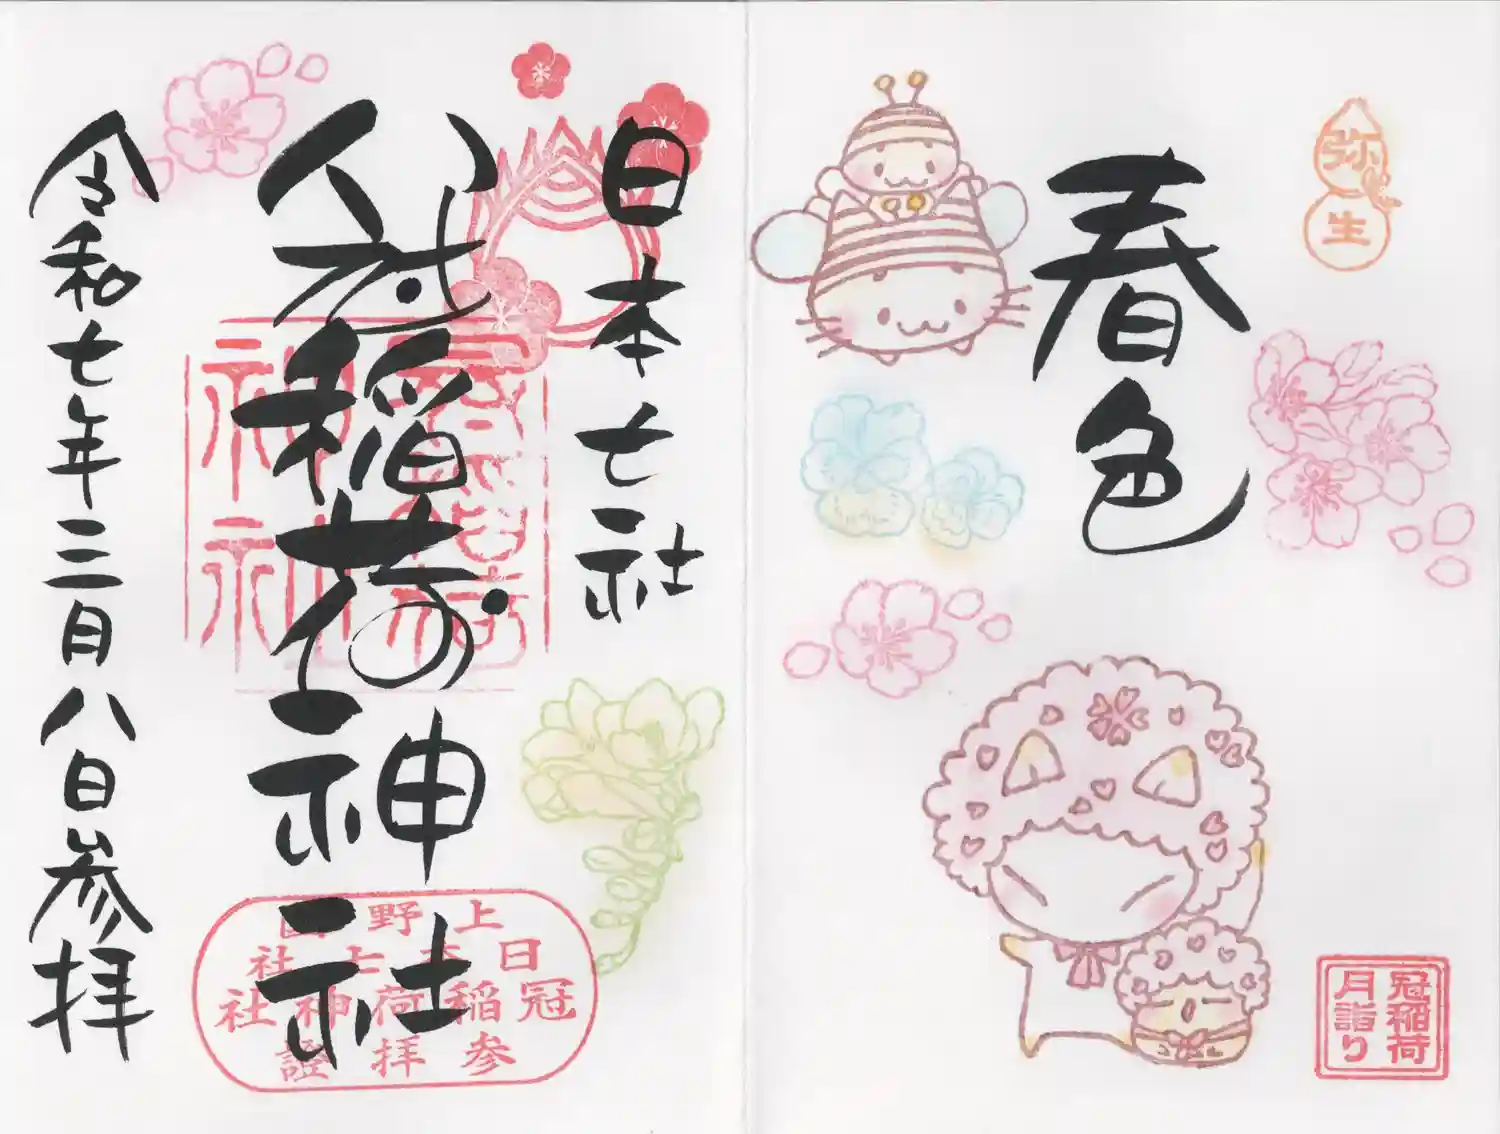 弥生
春色
冠稲荷
月詣り
日本七社
冠稲荷神社
上野國
日本七社
冠稲荷神社
参拝證
令和七年三月八日参拝